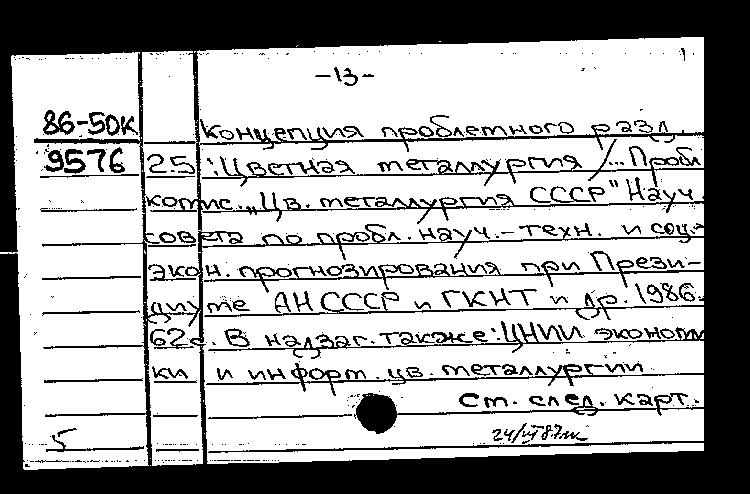 -13-
86-50К Концепция проблемного разд.
9576 2.5 : Цветная металлургия / ... Пробл
комис. „Цв. металлургия СССР" Науч.
совета по пробл. науч.-техн. и соц.-
экон. прогнозирования при Прези-
диуме АН СССР и ГКНТ и др. 1986.
62с. В надзаг. также: ЦНИИ экономи
ки и информ. цв. металлургии
См. след. карт.
5 24/VI 87